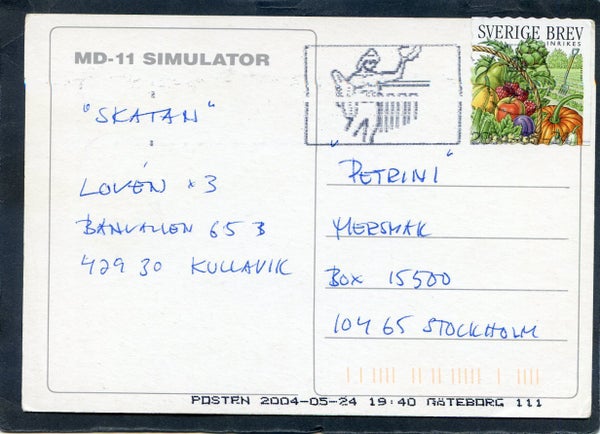 MD-11 SIMULATOR
SVERIGE BREV
INRIKES
"SKATAN"
LOVÉN x 3
BANVALLEN 65 B
429 30 KULLAVIK
"PETRINI"
MERSMAK
BOX 15500
104 65 STOCKHOLM
POSTEN 2004-05-24 19:40 GÖTEBORG 111